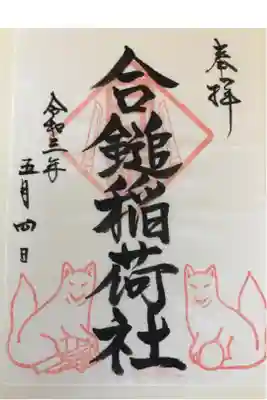 奉拝
合鎚稲荷社
令和三年
五月四日